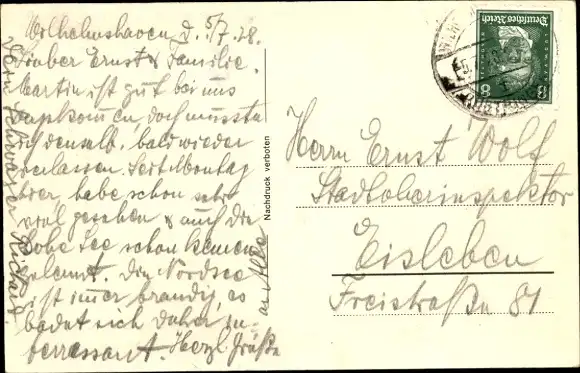 Wilhelmshaven, d. 5/7.28.
Lieber Ernst & Familie.
Martin ist gut bei uns
angekommen, doch musste
ich denselb. bald wieder
verlassen. Seit Montag
hier, habe schon sehr
viel gesehen & auch die
hohe See schon kennen
gelernt. Die Nordsee
ist immer brandig, es
badet sich daher in-
terressant. Herzl. Grüße
an Alle
Schwager Richard.
Nachdruck verboten
Deutsches Reich
8 8
Herrn Ernst Wolf
Stadtoberinspektor
Eisleben
Freistraße 81